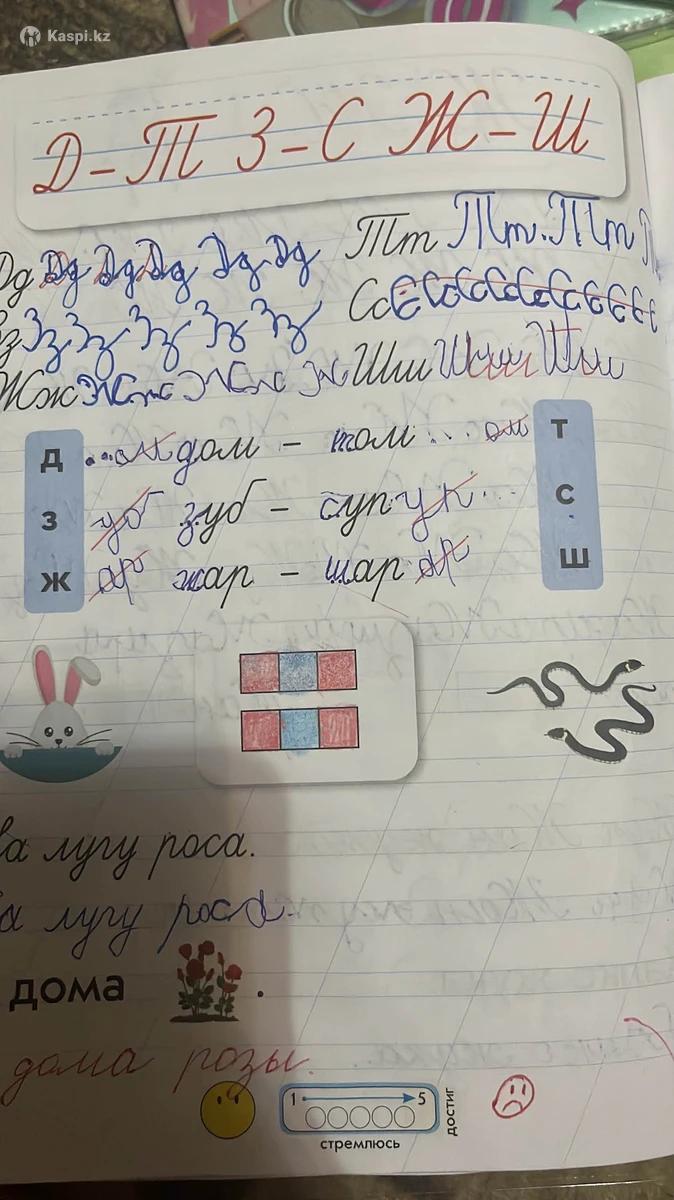 Kaspi.kz
Д – Т З – С Ж – Ш
Дд Дд Дд Дд Дд Дд Тт Тт. Тт
Зз Зз Зз Зз Зз Сс
Жж Жж Жж Ж Шш Шш Шш
д ...ом дом – том ...ом т
з уб зуб – суп уп... с
ж ар жар – шар ар ш
а лугу роса.
а лугу роса.
дома .
дома розы.
1 5
стремлюсь
достиг